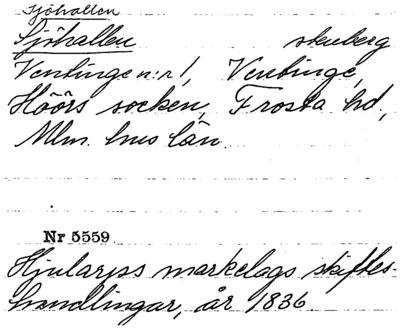 Sjöhallen
Sjöhallen skuberg
Ventinge n:r 1, Ventinge,
Höörs socken, Frosta hd,
Mlm. hus län.
Nr 5559
Hjularps markelags skiftes-
handlingar, år 1836